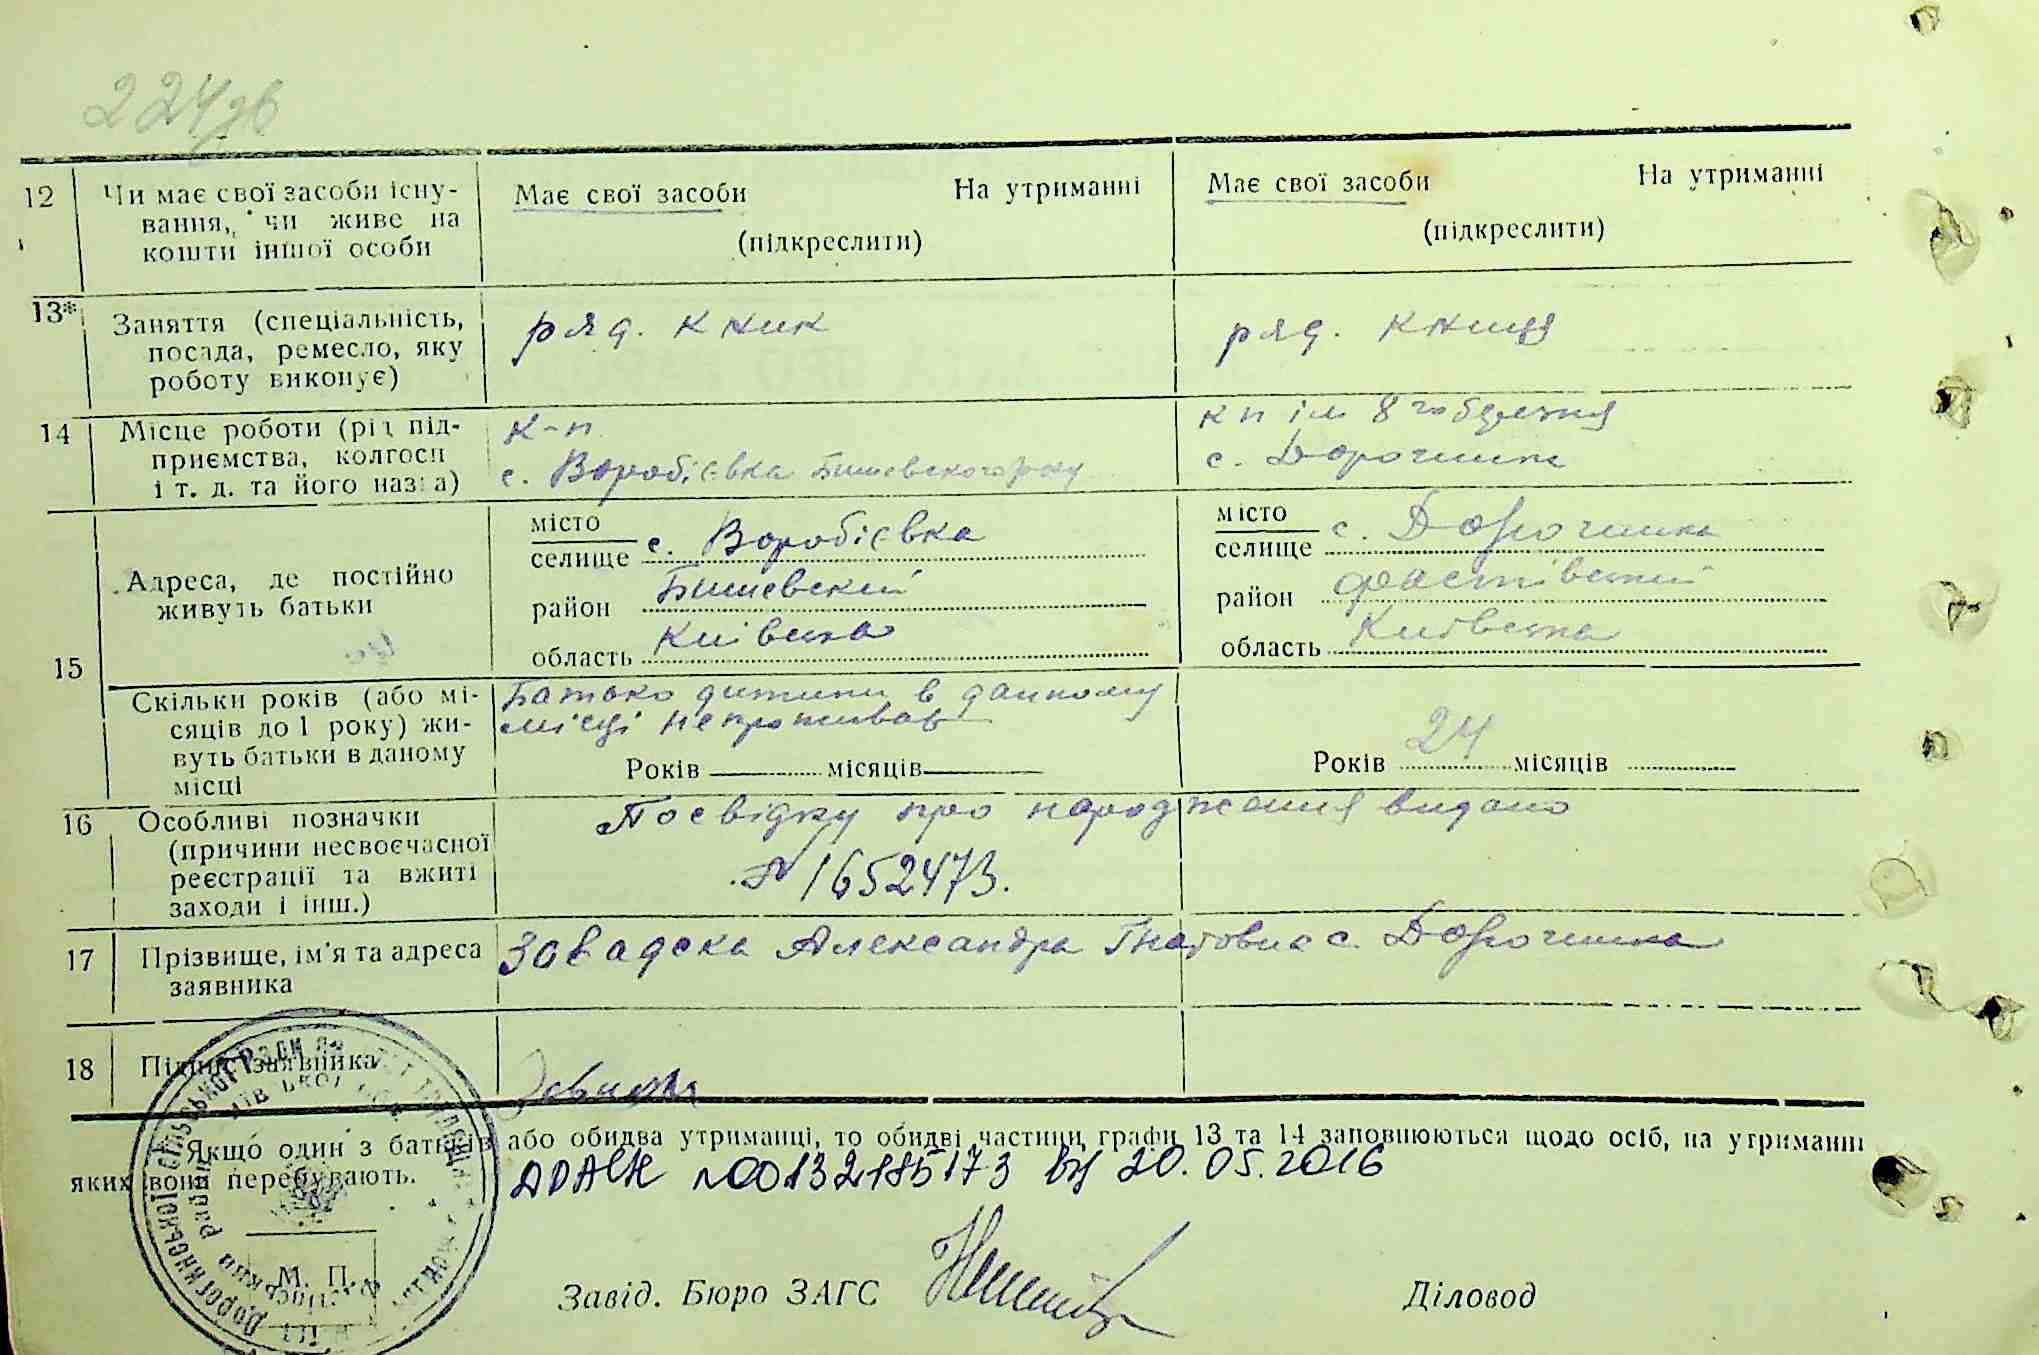 224зв
12 Чи має свої засоби існу-
вання, чи живе на
кошти іншої особи
Має свої засоби На утриманні
(підкреслити)
Має свої засоби На утриманні
(підкреслити)
13* Заняття (спеціальність,
посада, ремесло, яку
роботу виконує)
ряд. кник
ряд. книця
14 Місце роботи (рід під-
приємства, колгосп
і т. д. та його назва)
к-п
с. Воробієвка Бишевского р-ну
кп ім 8го березня
с. Дорогинка
15 Адреса, де постійно
живуть батьки
місто
селище с. Воробієвка
район Бишевский
область Київска
місто
селище с. Дорогинка
район Фастівский
область Київska
Скільки років (або мі-
сяців до 1 року) жи-
вуть батьки в даному
місці
Батько дитини в данному
місці непроживав
Років місяців
Років 24 місяців
16 Особливі позначки
(причини несвоєчасної
реєстрації та вжиті
заходи і інш.)
Посвідку про народження видано
№ 1652473.
17 Прізвище, ім'я та адреса
заявника
Завадска Александра Гнатовна с. Дорогинка
18 Підпис заявника
Якщо один з батьків або обидва утриманці, то обидві частини графи 13 та 14 заповнюються щодо осіб, на утриманні
яких вони перебувають.
АРАГС №00132185173 від 20.05.2016
М. П.
Завід. Бюро ЗАГС
Діловод